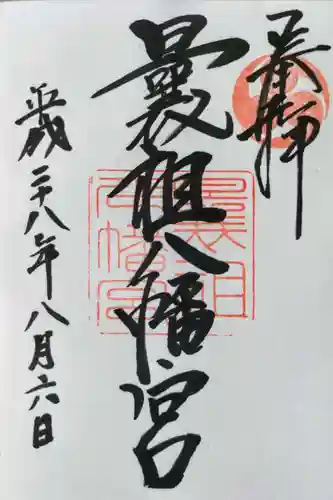 奉拝
曩祖八幡宮
平成二十八年八月六日
曩祖
八幡宮